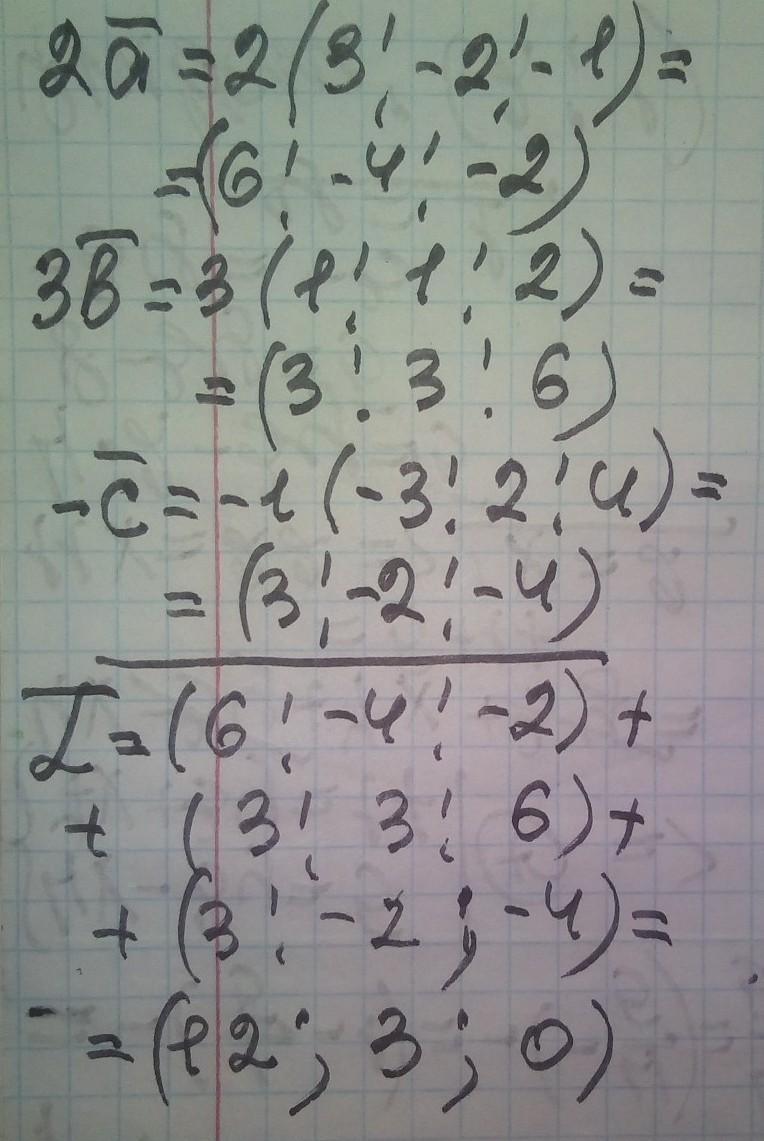 2a̅ = 2(3; -2; -1) =
= (6; -4; -2)
3b̅ = 3(1; 1; 2) =
= (3; 3; 6)
-c̅ = -1(-3; 2; 4) =
= (3; -2; -4)
L̅ = (6; -4; -2) +
+ (3; 3; 6) +
+ (3; -2; -4) =
= (12; 3; 0)